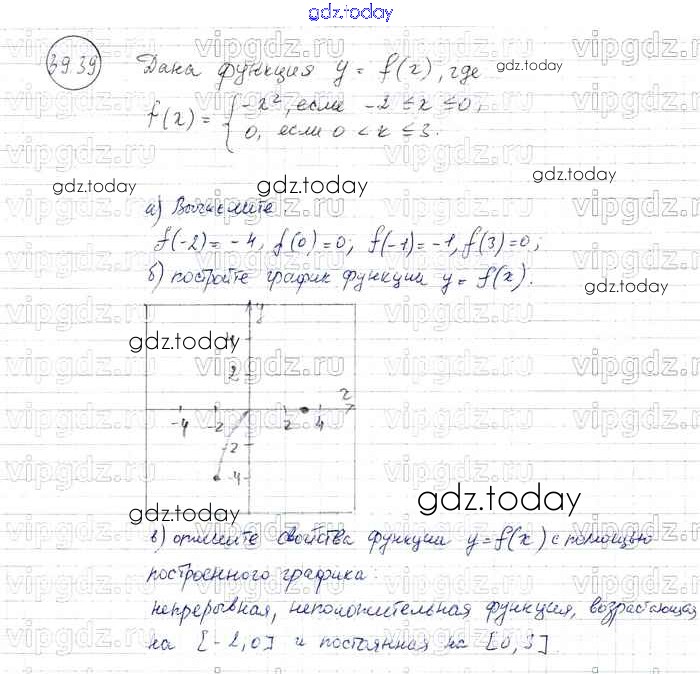 gdz.today
39.39
Дана функция y = f(x), где
f(x) = { -x², если -2 ≤ x ≤ 0,
0, если 0 < x ≤ 3.
gdz.today
gdz.today
gdz.today
gdz.today
а) Вычислите:
f(-2) = -4, f(0) = 0, f(-1) = -1, f(3) = 0;
б) постройте график функции y = f(x).
y
gdz.today
2
x
-4 -2 2 4
-2
-4
gdz.today
gdz.today
в) опишите свойства функции y = f(x) с помощью
построенного графика
непрерывная, неположительная функция, возрастающая
на [-2, 0] и постоянная на [0, 3].
vipgdz.ru